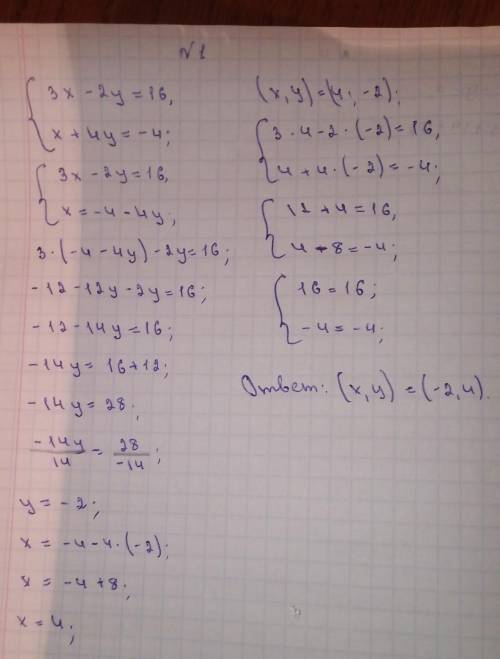 №1
3x - 2y = 16,
x + 4y = -4;
3x - 2y = 16,
x = -4 - 4y;
3·(-4 - 4y) - 2y = 16;
-12 - 12y - 2y = 16;
-12 - 14y = 16;
-14y = 16 + 12;
-14y = 28;
-14y/14 = 28/-14;
y = -2;
x = -4 - 4·(-2);
x = -4 + 8;
x = 4;
(x, y) = (4; -2);
3·4 - 2·(-2) = 16,
4 + 4·(-2) = -4;
12 + 4 = 16,
4 - 8 = -4;
16 = 16;
-4 = -4;
Ответ: (x, y) = (-2, 4).